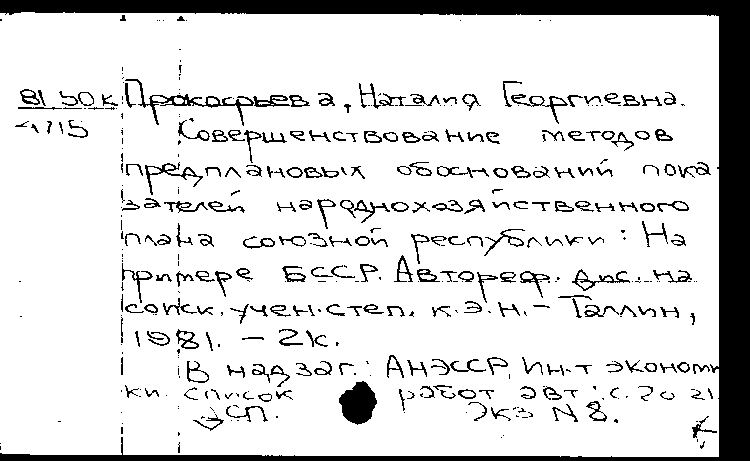 81 50к Прокофьева, Наталия Георгиевна.
4715 Совершенствование методов
предплановых обоснований пока-
зателей народнохозяйственного
плана союзной республики: На
примере БССР. Автореф. дис. на
соиск. учен. степ. к.э.н. – Таллин,
1981. – 2к.
В надзаг.: АН ЭССР, Ин-т экономи
ки. Список работ авт.: с. 20 21
СП. Экз N 8.